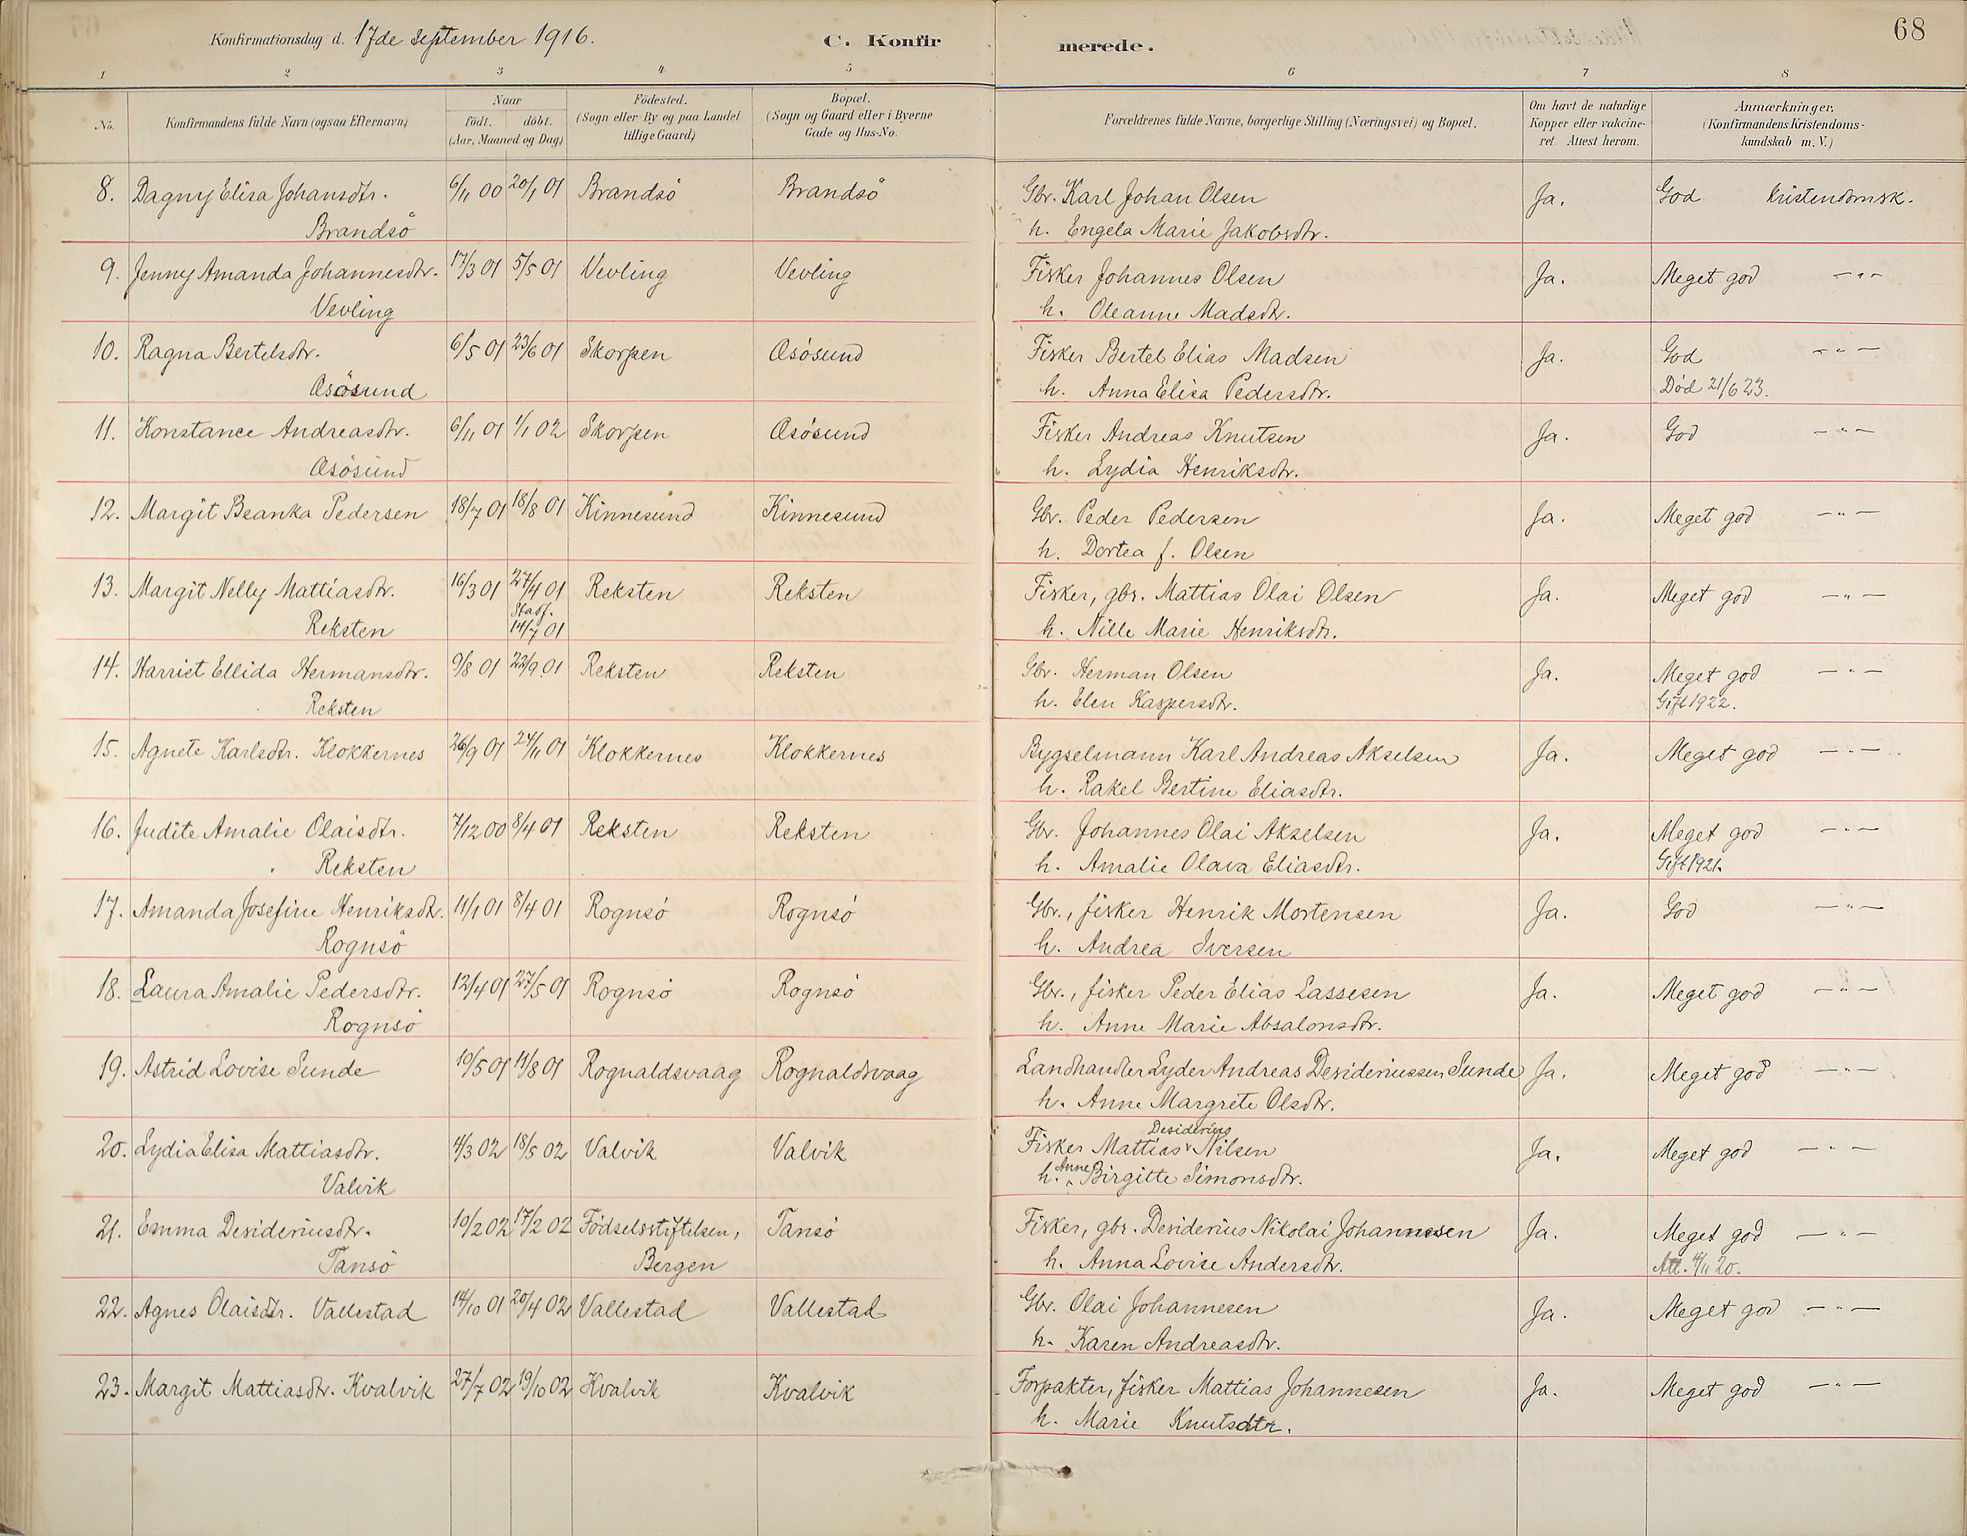 Konfirmationsdag d. 17de september 1916.
C. Konfirmerede.
68
1 2 3 4 5 6 7 8
No. Konfirmandens fulde Navn (ogsaa Efternavn) Naar født. døbt. (Aar, Maaned og Dag) Fødested. (Sogn eller By og paa Landet tillige Gaard) Bopæl. (Sogn og Gaard eller i Byerne Gade og Hus-No. Forældrenes fulde Navne, borgerlige Stilling (Næringsvei) og Bopæl. Om havt de naturlige Kopper eller vakcineret. Attest herom. Anmærkninger. (Konfirmandens Kristendomskundskab m. V.)
8. Dagny Elisa Johansdtr. 6/11 00 20/1 01 Brandsö Brandsö Gbr. Karl Johan Olsen Ja. God kristendomsk.
Brandsö h. Engela Marie Jakobsdtr.
9. Jenny Amanda Johannesdtr. 17/3 01 5/5 01 Vevling Vevling Fisker Johannes Olsen Ja. Meget god —"—
Vevling h. Oleanne Madsdtr.
10. Ragna Bertelsdtr. 6/5 01 23/6 01 Skorpen Osösund Fisker Bertel Elias Madsen Ja. God —"—
Osösund h. Anna Elisa Pedersdtr. Död 21/6 23.
11. Konstance Andreasdtr. 6/11 01 1/1 02 Skorpen Osösund Fisker Andreas Knutsen Ja. God —"—
Osösund h. Lydia Henriksdtr.
12. Margit Beanka Pedersen 18/7 01 18/8 01 Kinnesund Kinnesund Gbr. Peder Pedersen Ja. Meget god —"—
h. Dortea f. Olsen
13. Margit Nelly Mattiasdtr. 16/3 01 27/4 01 Reksten Reksten Fisker, gbr. Mattias Olai Olsen Ja. Meget god —"—
Reksten Stadf. 14/7 01 h. Nille Marie Henriksdtr.
14. Harriet Ellida Hermansdtr. 9/8 01 22/9 01 Reksten Reksten Gbr. Herman Olsen Ja. Meget god —"—
Reksten h. Elen Kaspersdtr. Gift 1922.
15. Agnete Karlsdtr. Klokkernes 26/9 01 24/11 01 Klokkernes Klokkernes Bygselmann Karl Andreas Akselsen Ja. Meget god —"—
h. Rakel Bertine Eliasdtr.
16. Judite Amalie Olaisdtr. 7/12 00 8/4 01 Reksten Reksten Gbr. Johannes Olai Akselsen Ja. Meget god —"—
Reksten h. Amalie Olava Eliasdtr. Gift 1921.
17. Amanda Josefine Henriksdtr. 11/1 01 8/4 01 Rognsö Rognsö Gbr., fisker Henrik Mortensen Ja. God —"—
Rognsö h. Andrea Iversen
18. Laura Amalie Pedersdtr. 12/4 01 27/5 01 Rognsö Rognsö Gbr., fisker Peder Elias Lassesen Ja. Meget god —"—
Rognsö h. Anne Marie Absalonsdtr.
19. Astrid Lovise Sunde 10/5 01 11/8 01 Rognaldsvaag Rognaldsvaag Landhandler Lyder Andreas Desideriussen Sunde Ja. Meget god —"—
h. Anne Margrete Olsdtr.
20. Lydia Elisa Mattiasdtr. 4/3 02 18/5 02 Valvik Valvik Fisker Mattias Desiderius Nilsen Ja. Meget god —"—
Valvik h. Anne Birgitte Simonsdtr.
21. Emma Desideriusdtr. 10/2 02 17/2 02 Födselsstiftelsen, Tansö Fisker, gbr. Desiderius Nikolai Johannesen Ja. Meget god —"—
Tansö Bergen h. Anna Lovise Andersdtr. Att. 4/11 20.
22. Agnes Olaisdtr. Vallestad 14/10 01 20/4 02 Vallestad Vallestad Gbr. Olai Johannesen Ja. Meget god —"—
h. Karen Andreasdtr.
23. Margit Mattiasdtr. Kvalvik 27/7 02 19/10 02 Kvalvik Kvalvik Forpakter, fisker Mattias Johannesen Ja. Meget god —"—
h. Marie Knutsdtr.